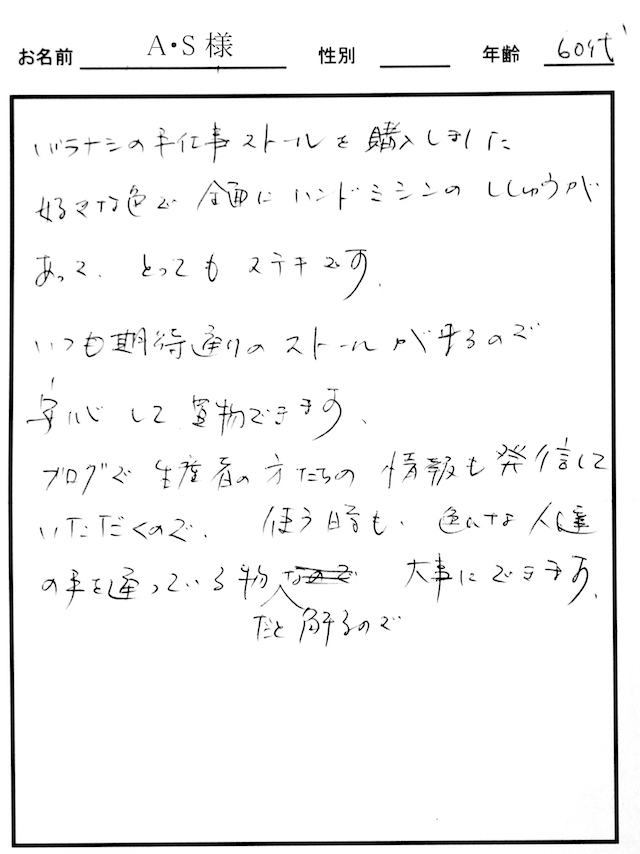 お名前 A・S様 性別 年齢 60代
バラナシの手仕事ストールを購入しました
好きな色で 全面に ハンドミシンの ししゅうが
あって、とっても ステキです。
いつも期待通りの ストールが 来るので
安心 して 買物できます。
ブログで 生産者の方たちの 情報も 発信して
いただくので、 使う時も、色んな人達
の手を通っている物なので 大事にできます。
だと解るので